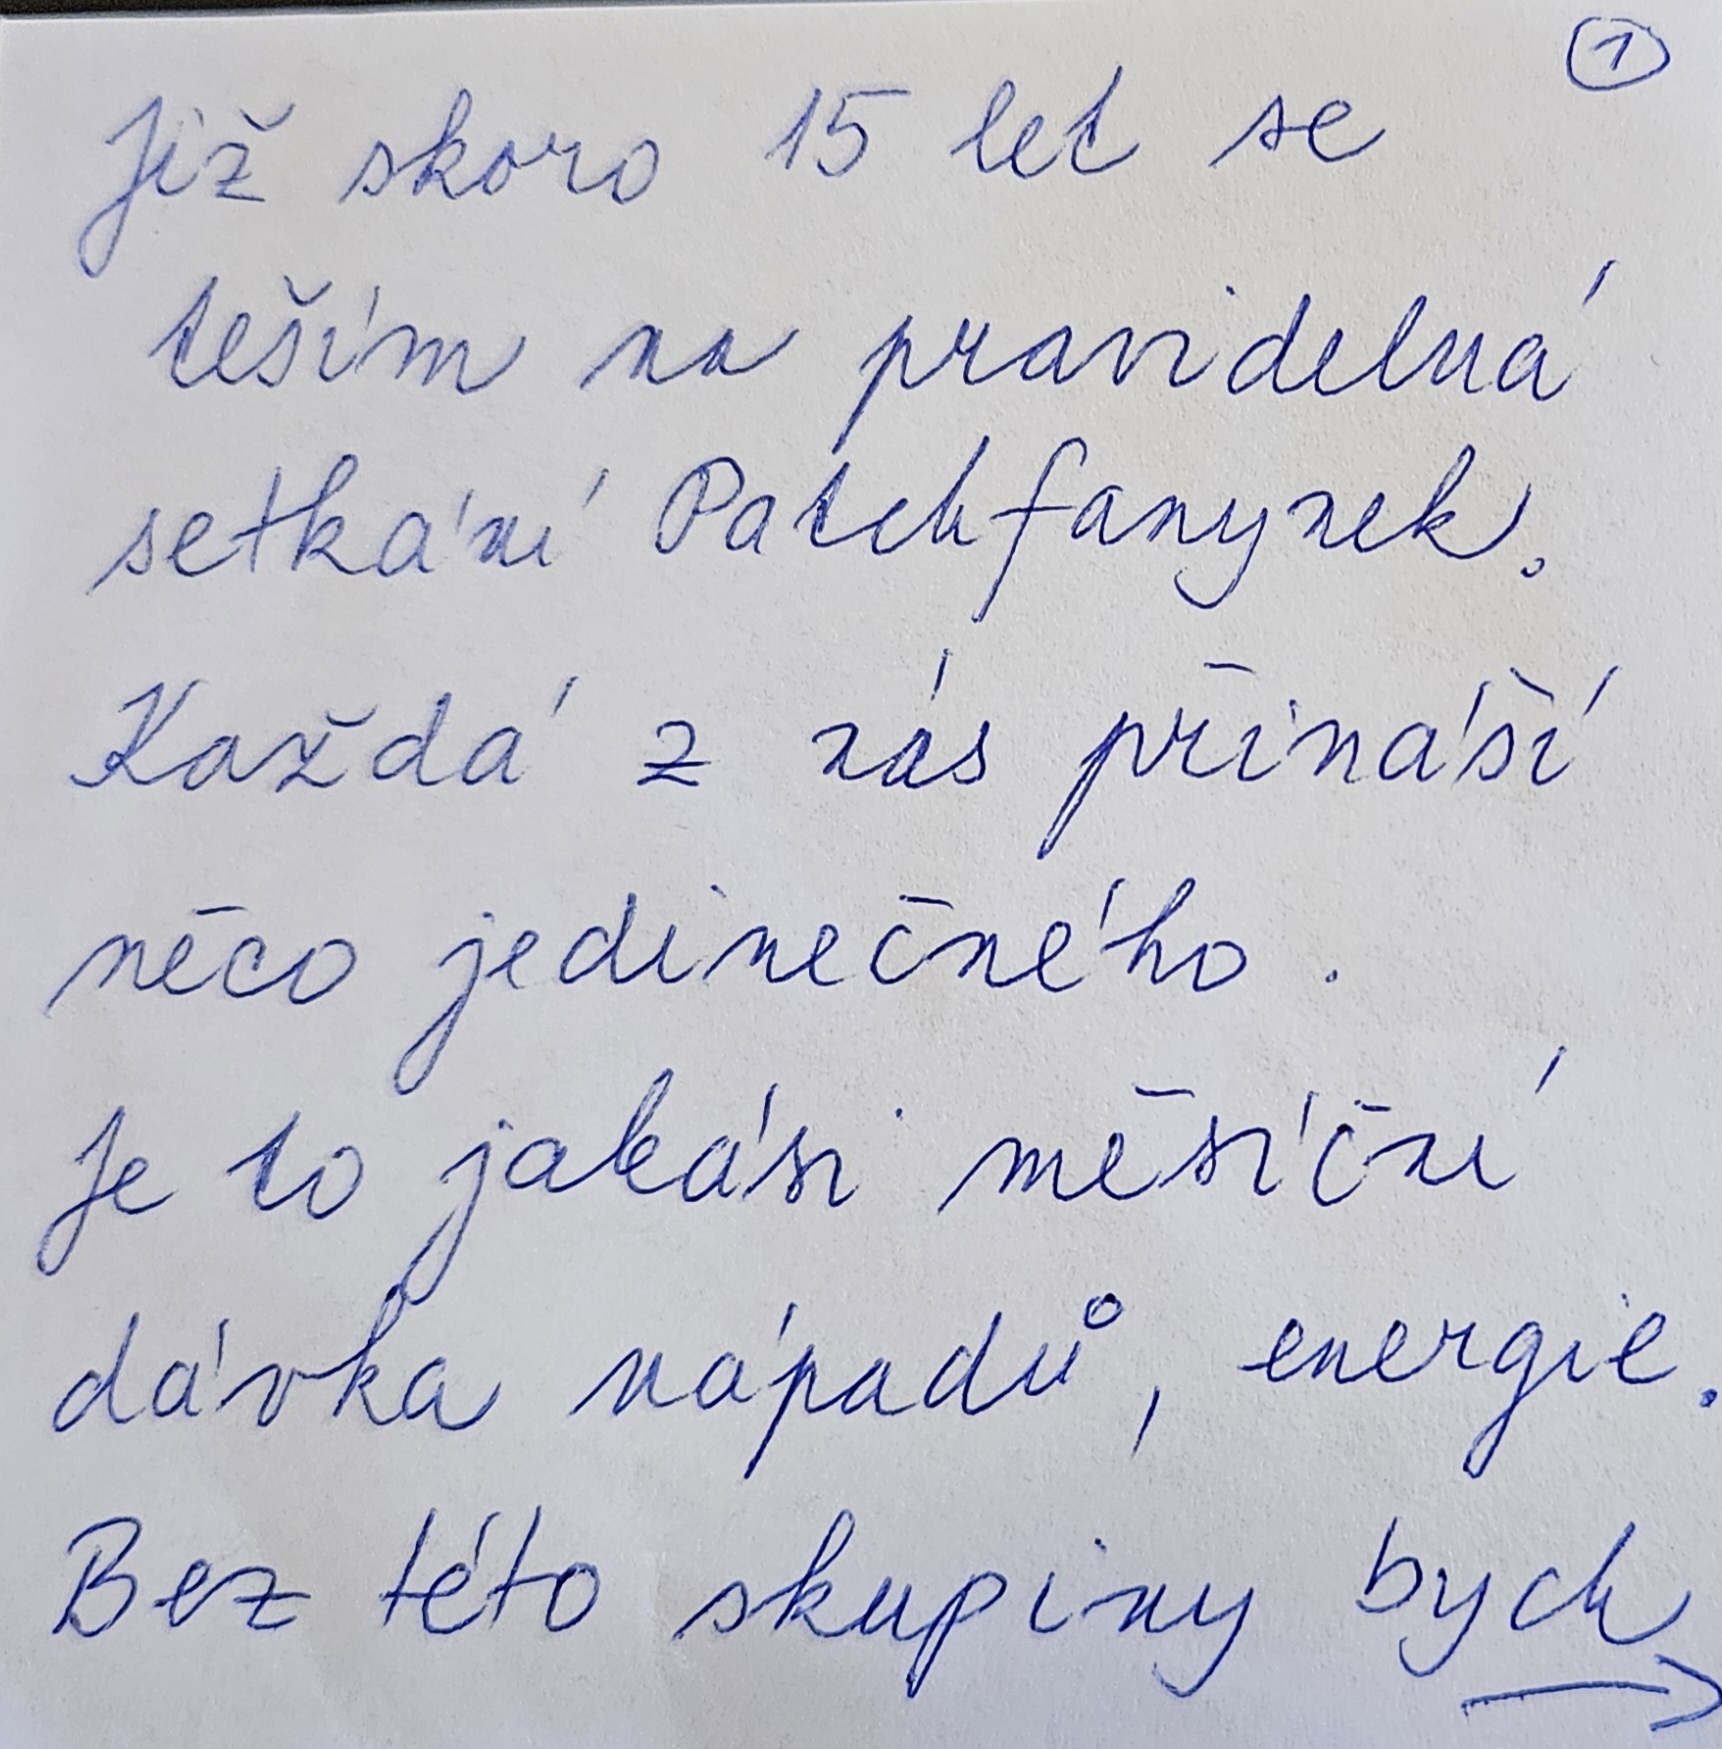 1
Již skoro 15 let se
teším na pravidelná
setkání Patchfanynek.
Každá z nás přináší
něco jedinečného.
Je to jakási měsíční
dávka nápadů, energie.
Bez této skupiny bych
→